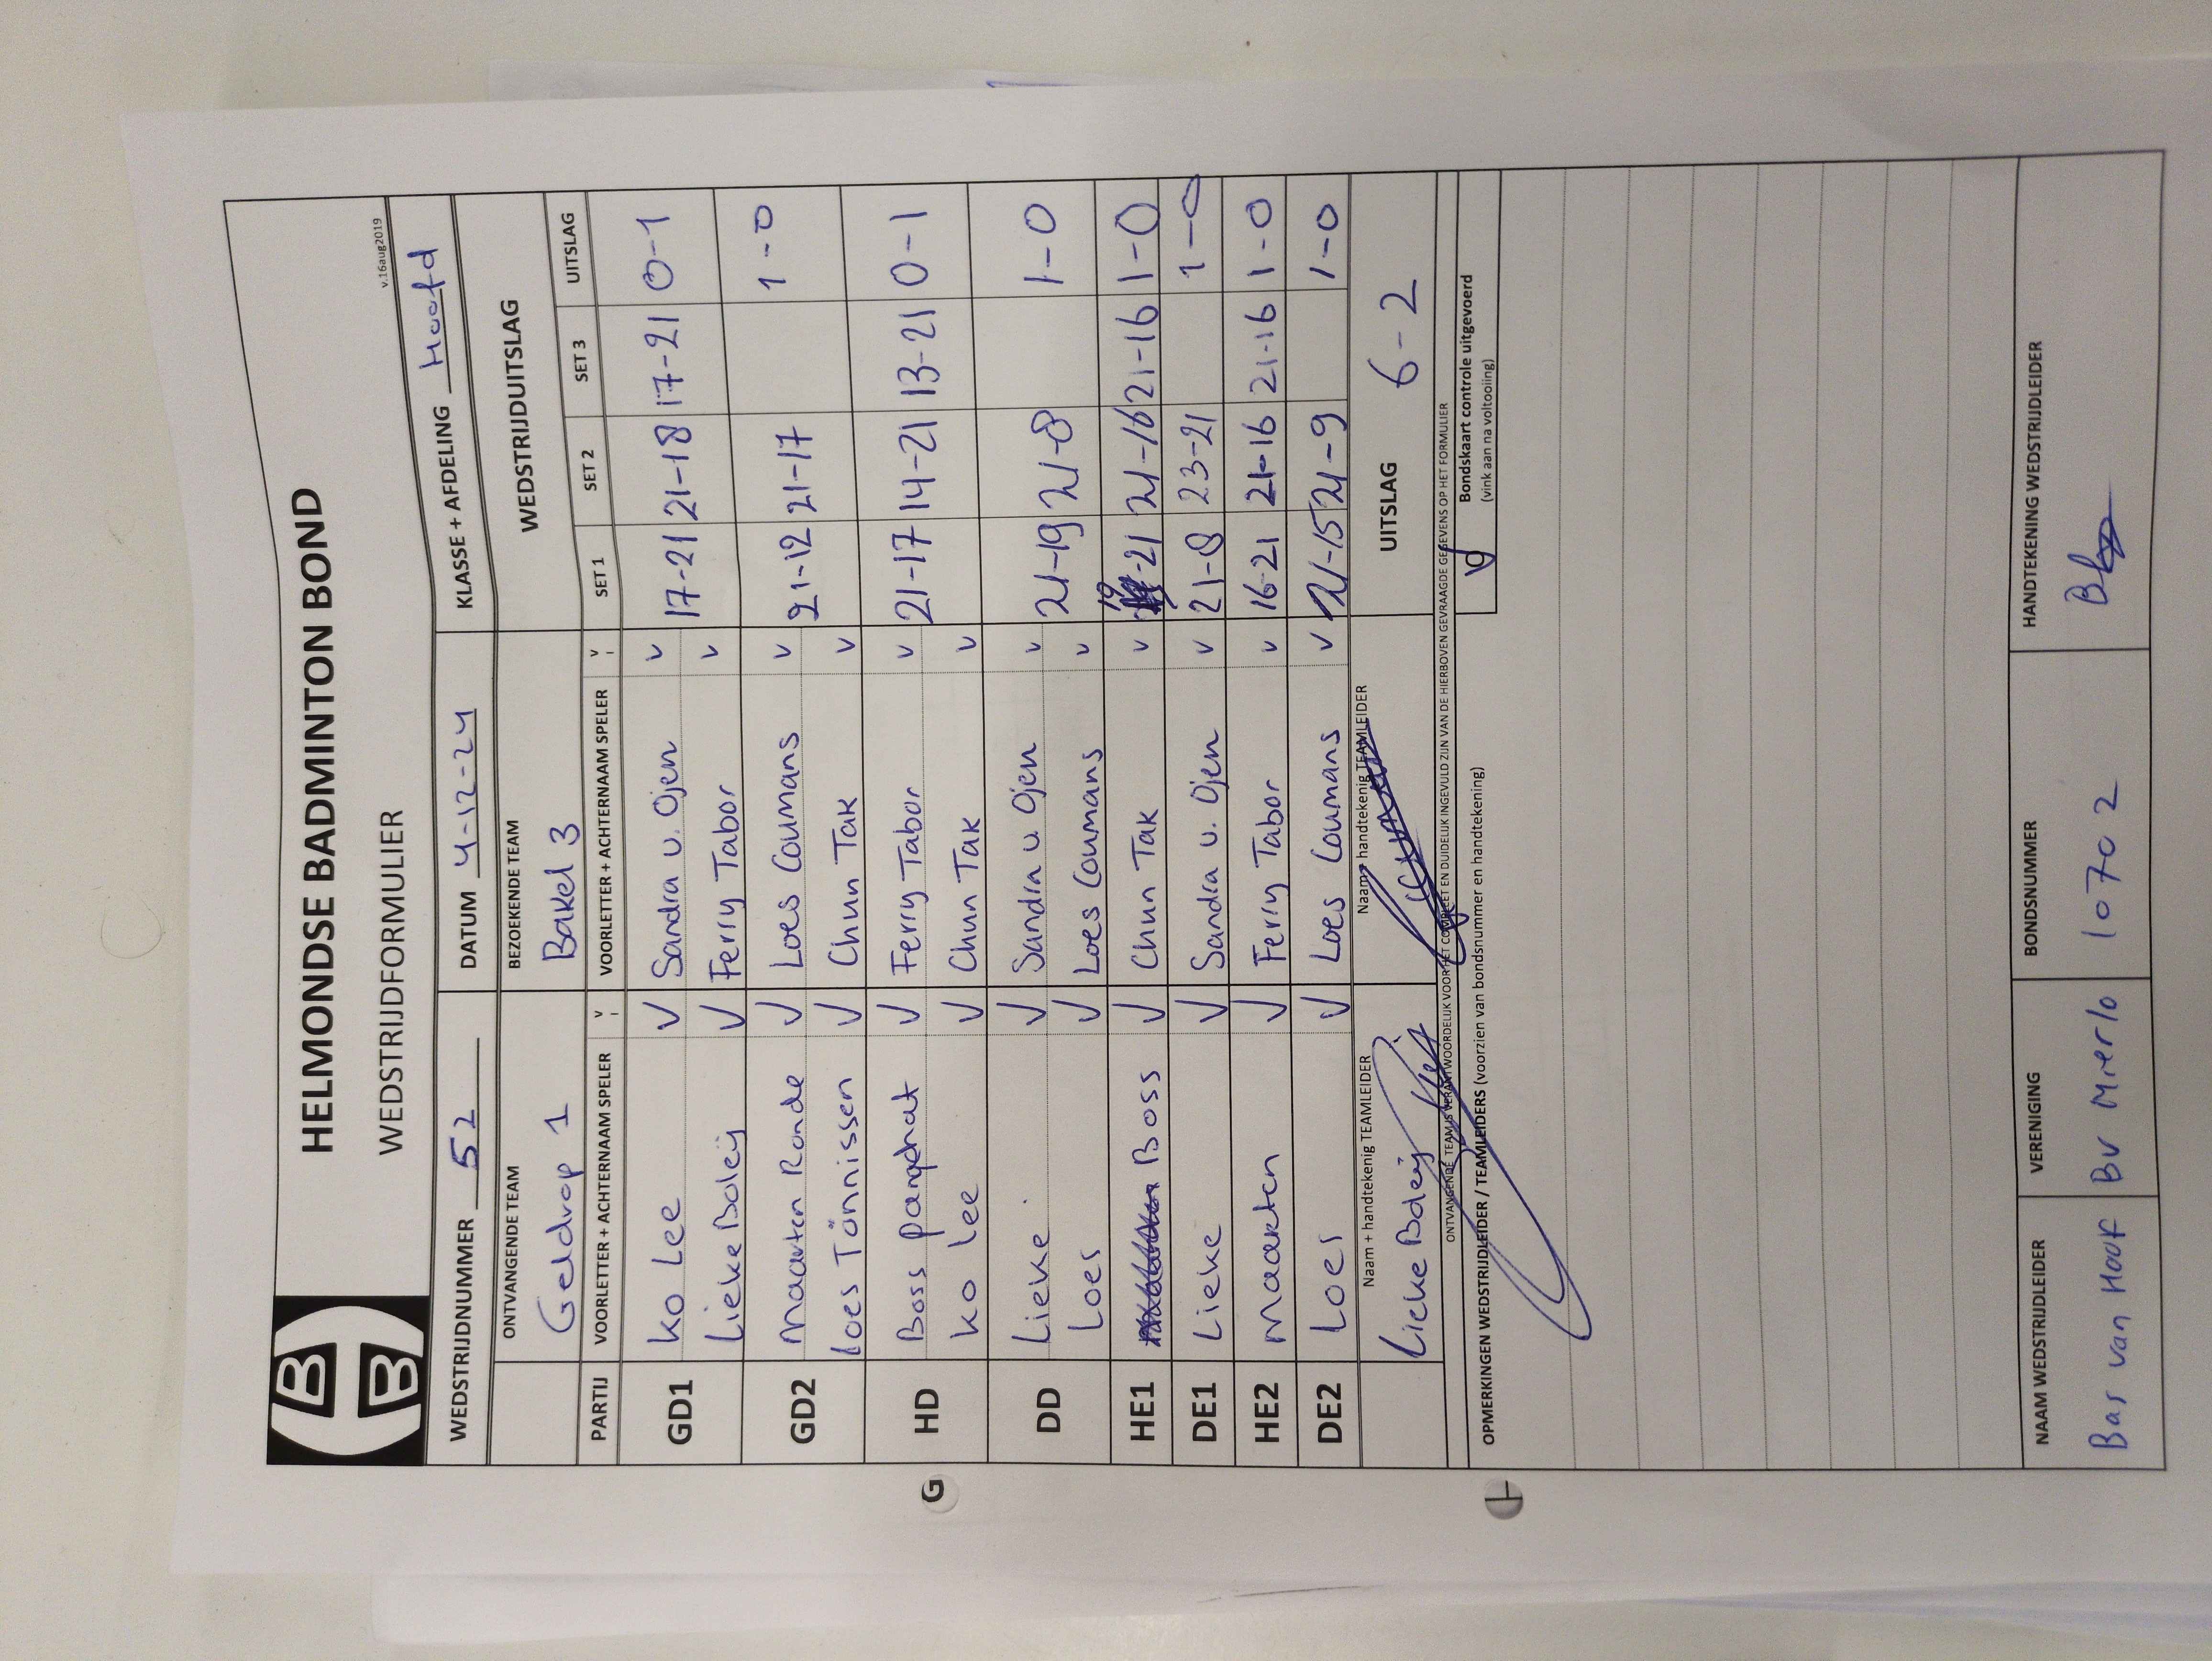 HELMONDSE BADMINTON BOND
WEDSTRIJDFORMULIER
v.16aug2019
WEDSTRIJDNUMMER 52 DATUM 4-12-24 KLASSE + AFDELING Hoofd
ONTVANGENDE TEAM BEZOEKENDE TEAM WEDSTRIJDUITSLAG
Geldrop 1 Bakel 3
PARTIJ VOORLETTER + ACHTERNAAM SPELER V VOORLETTER + ACHTERNAAM SPELER V SET 1 SET 2 SET 3 UITSLAG
GD1 Ko Lee V Sandra v. Ojen V 17-21 21-18 17-21 0-1
Lieke Boleij V Ferry Tabor V
GD2 Maarten Ronde V Loes Coumans V 21-12 21-17 1-0
Loes Tönnissen V Chun Tak V
HD Boss pangehat V Ferry Tabor V 21-17 14-21 13-21 0-1
Ko Lee V Chun Tak V
DD Lieke V Sandra v. Ojen V 21-19 21-8 1-0
Loes V Loes Coumans V
HE1 Boss V Chun Tak V 19-21 21-16 21-16 1-0
DE1 Lieke V Sandra v. Ojen V 21-8 23-21 1-0
HE2 Maarten V Ferry Tabor V 16-21 21-16 21-16 1-0
DE2 Loes V Loes Coumans V 21-15 21-9 1-0
Naam + handtekenig TEAMLEIDER Naam + handtekenig TEAMLEIDER UITSLAG 6-2
Lieke Boleij
ONTVANGENDE TEAM IS VERANTWOORDELIJK VOOR HET COMPLEET EN DUIDELIJK INGEVULD ZIJN VAN DE HIERBOVEN GEVRAAGDE GEGEVENS OP HET FORMULIER
OPMERKINGEN WEDSTRIJDLEIDER / TEAMLEIDERS (voorzien van bondsnummer en handtekening)
V Bondskaart controle uitgevoerd
(vink aan na voltooiing)
NAAM WEDSTRIJDLEIDER VERENIGING BONDSNUMMER HANDTEKENING WEDSTRIJDLEIDER
Bas van Hoof BV Mierlo 10702
G